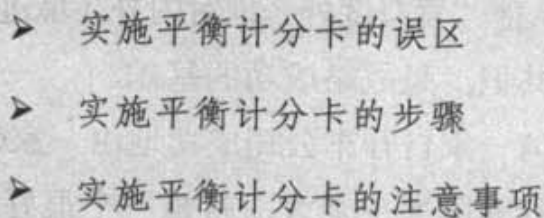 ➢ 实施平衡计分卡的误区
➢ 实施平衡计分卡的步骤
➢ 实施平衡计分卡的注意事项